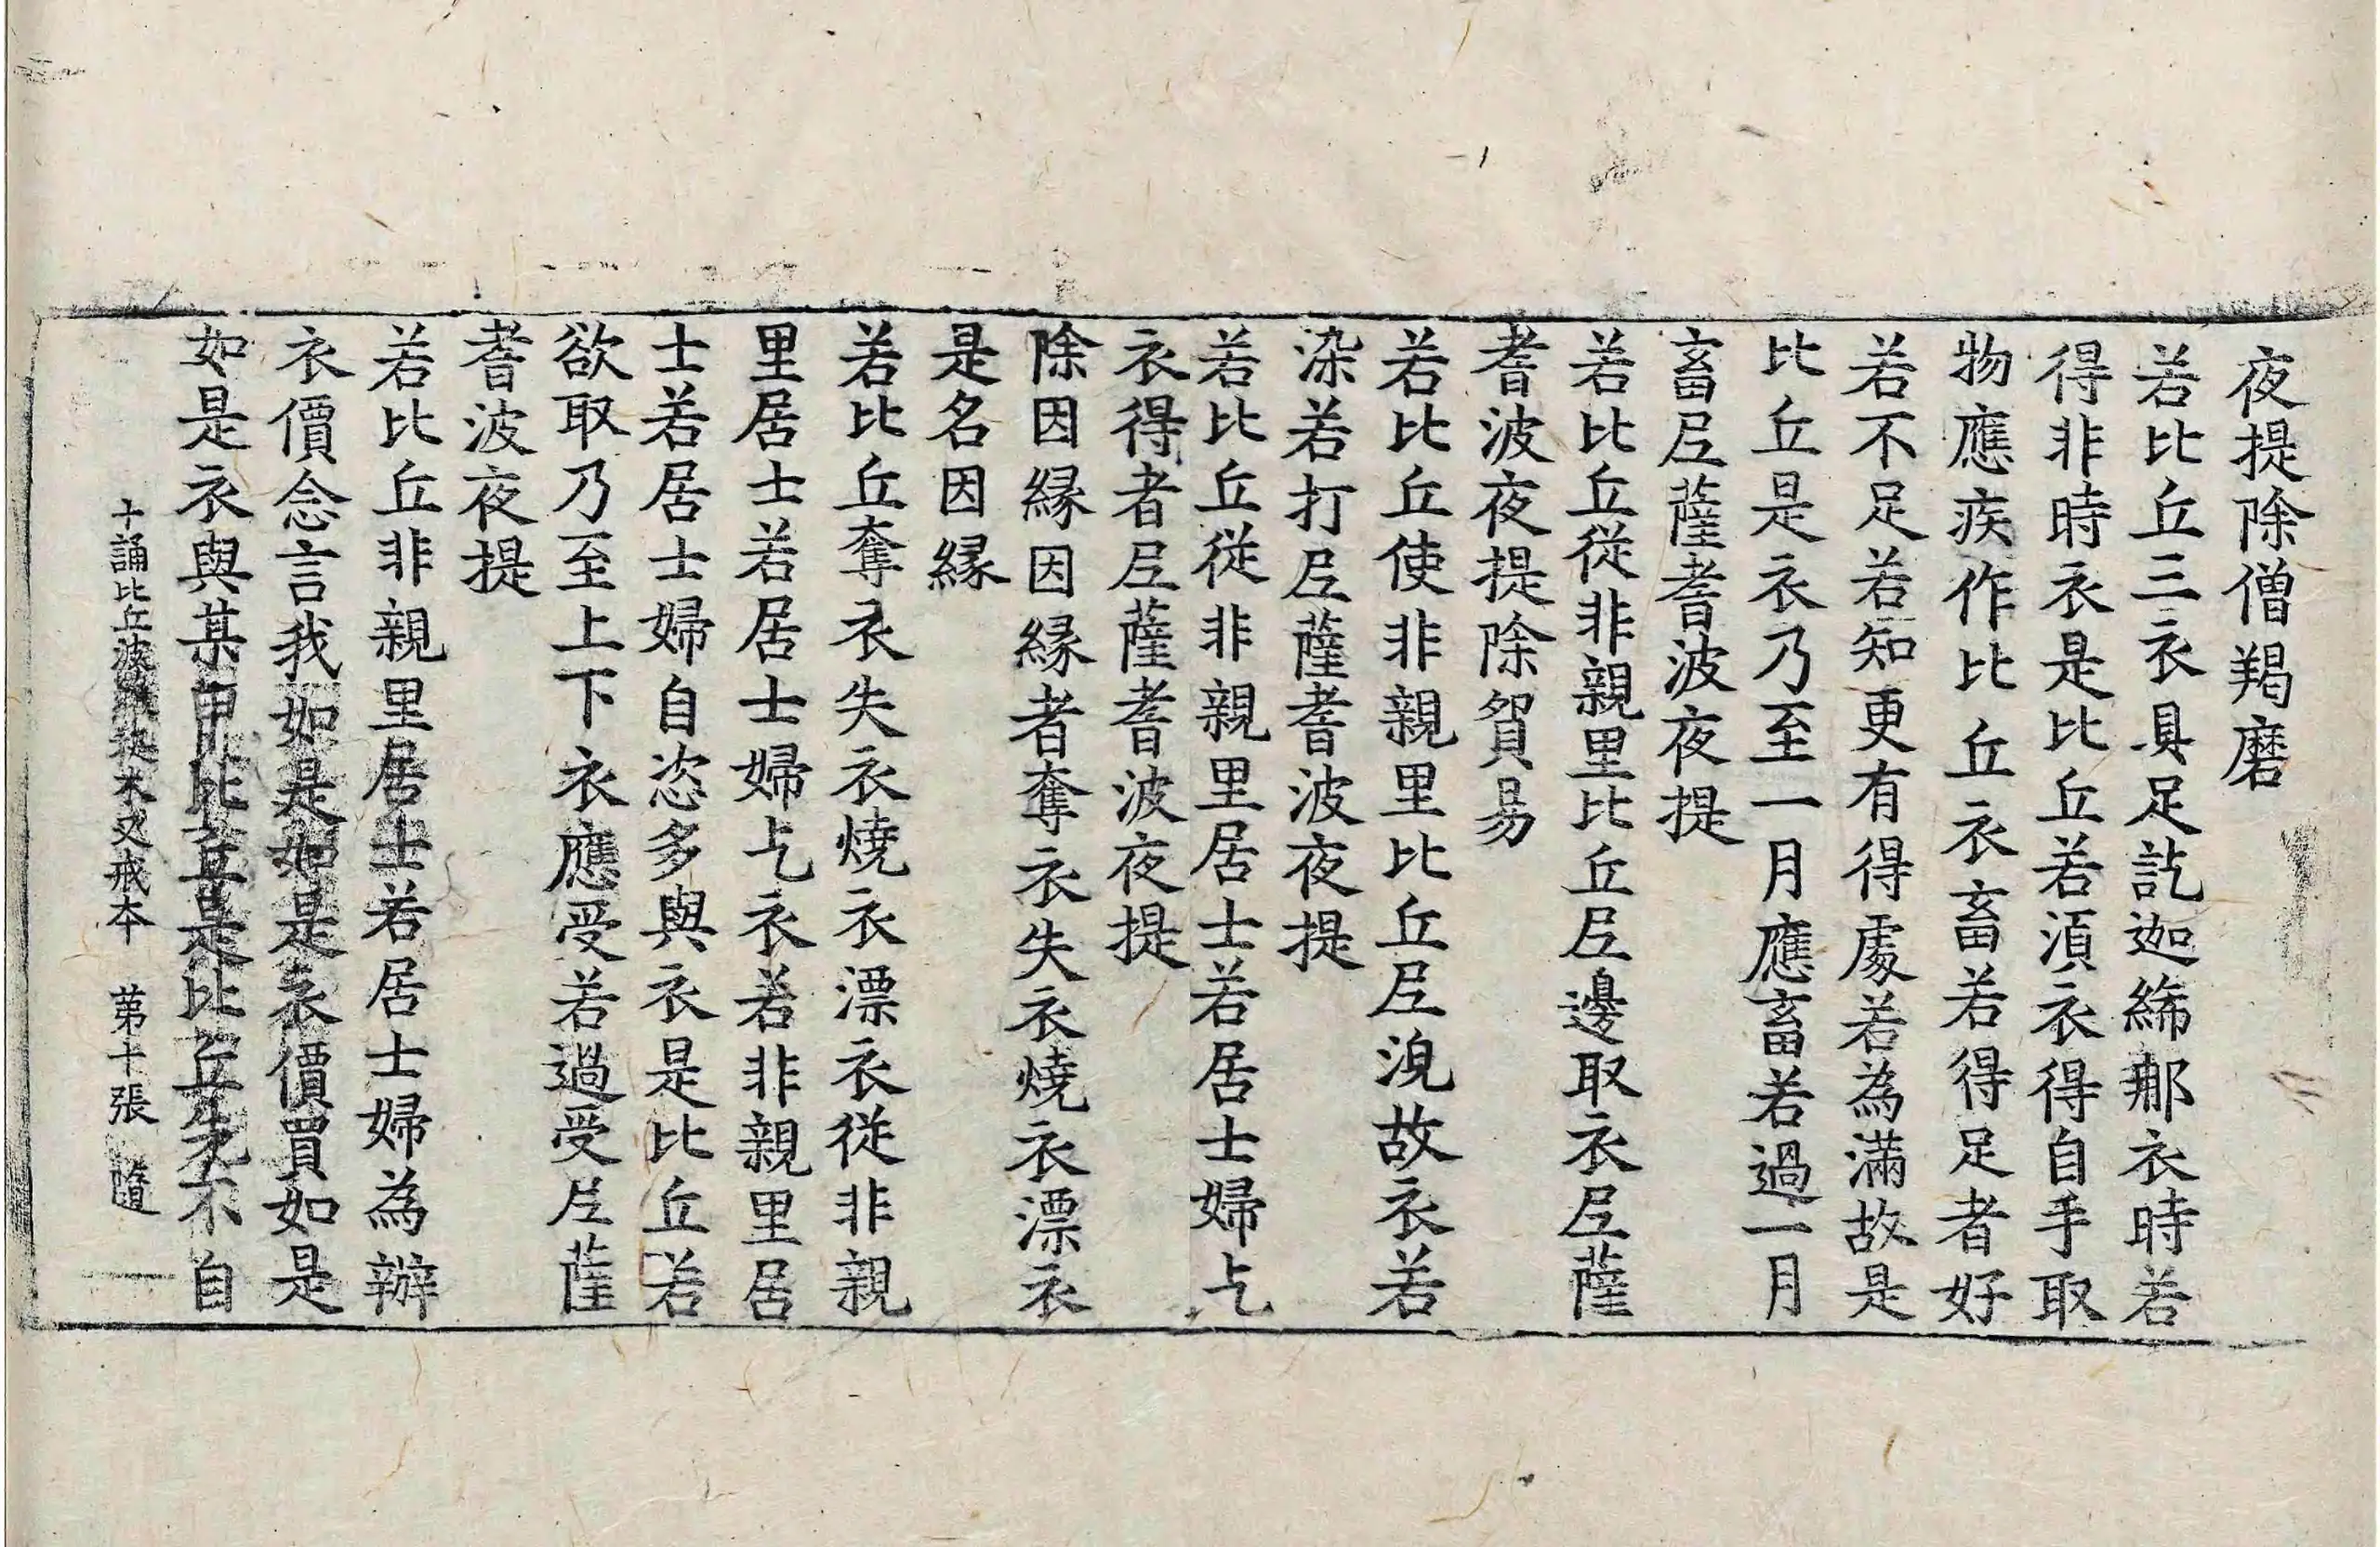 夜提除僧羯磨
若比丘三衣具足訖迦絺那衣時若
得非時衣是比丘若湏衣得自手取
物應疾作比丘衣畜若得足者好
若不足若知更有得處若為滿故是
比丘是衣乃至一月應畜若過一月
畜尼薩耆波夜提
若比丘從非親里比丘尼邊取衣尼薩
耆波夜提除貿易
若比丘使非親里比丘尼浣故衣若
染若打尼薩耆波夜提
若比丘從非親里居士若居士婦乞
衣得者尼薩耆波夜提
除因緣因緣者奪衣失衣燒衣漂衣
是名因緣
若比丘奪衣失衣燒衣漂衣從非親
里居士若居士婦乞衣若非親里居
士若居士婦自恣多與衣是比丘若
欲取乃至上下衣應受若過受尼薩
耆波夜提
若比丘非親里居士若居士婦為辦
衣價念言我如是如是衣價買如是
如是衣與某甲比丘是比丘先不自
十誦比丘波羅提木叉戒本 第十張 隨